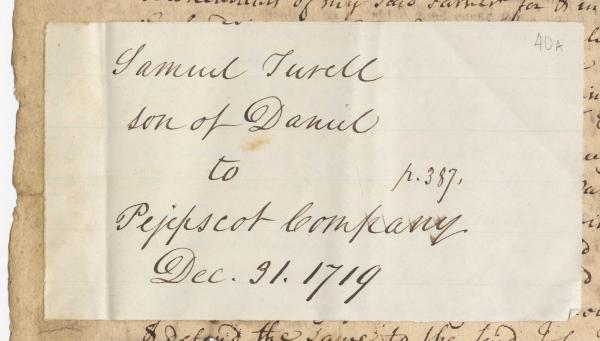 of my said Father for & in
40A
Samuel Turell
son of Daniel
to
p. 387.
Pejepscot Company
Dec. 31. 1719
& defend the same to the said